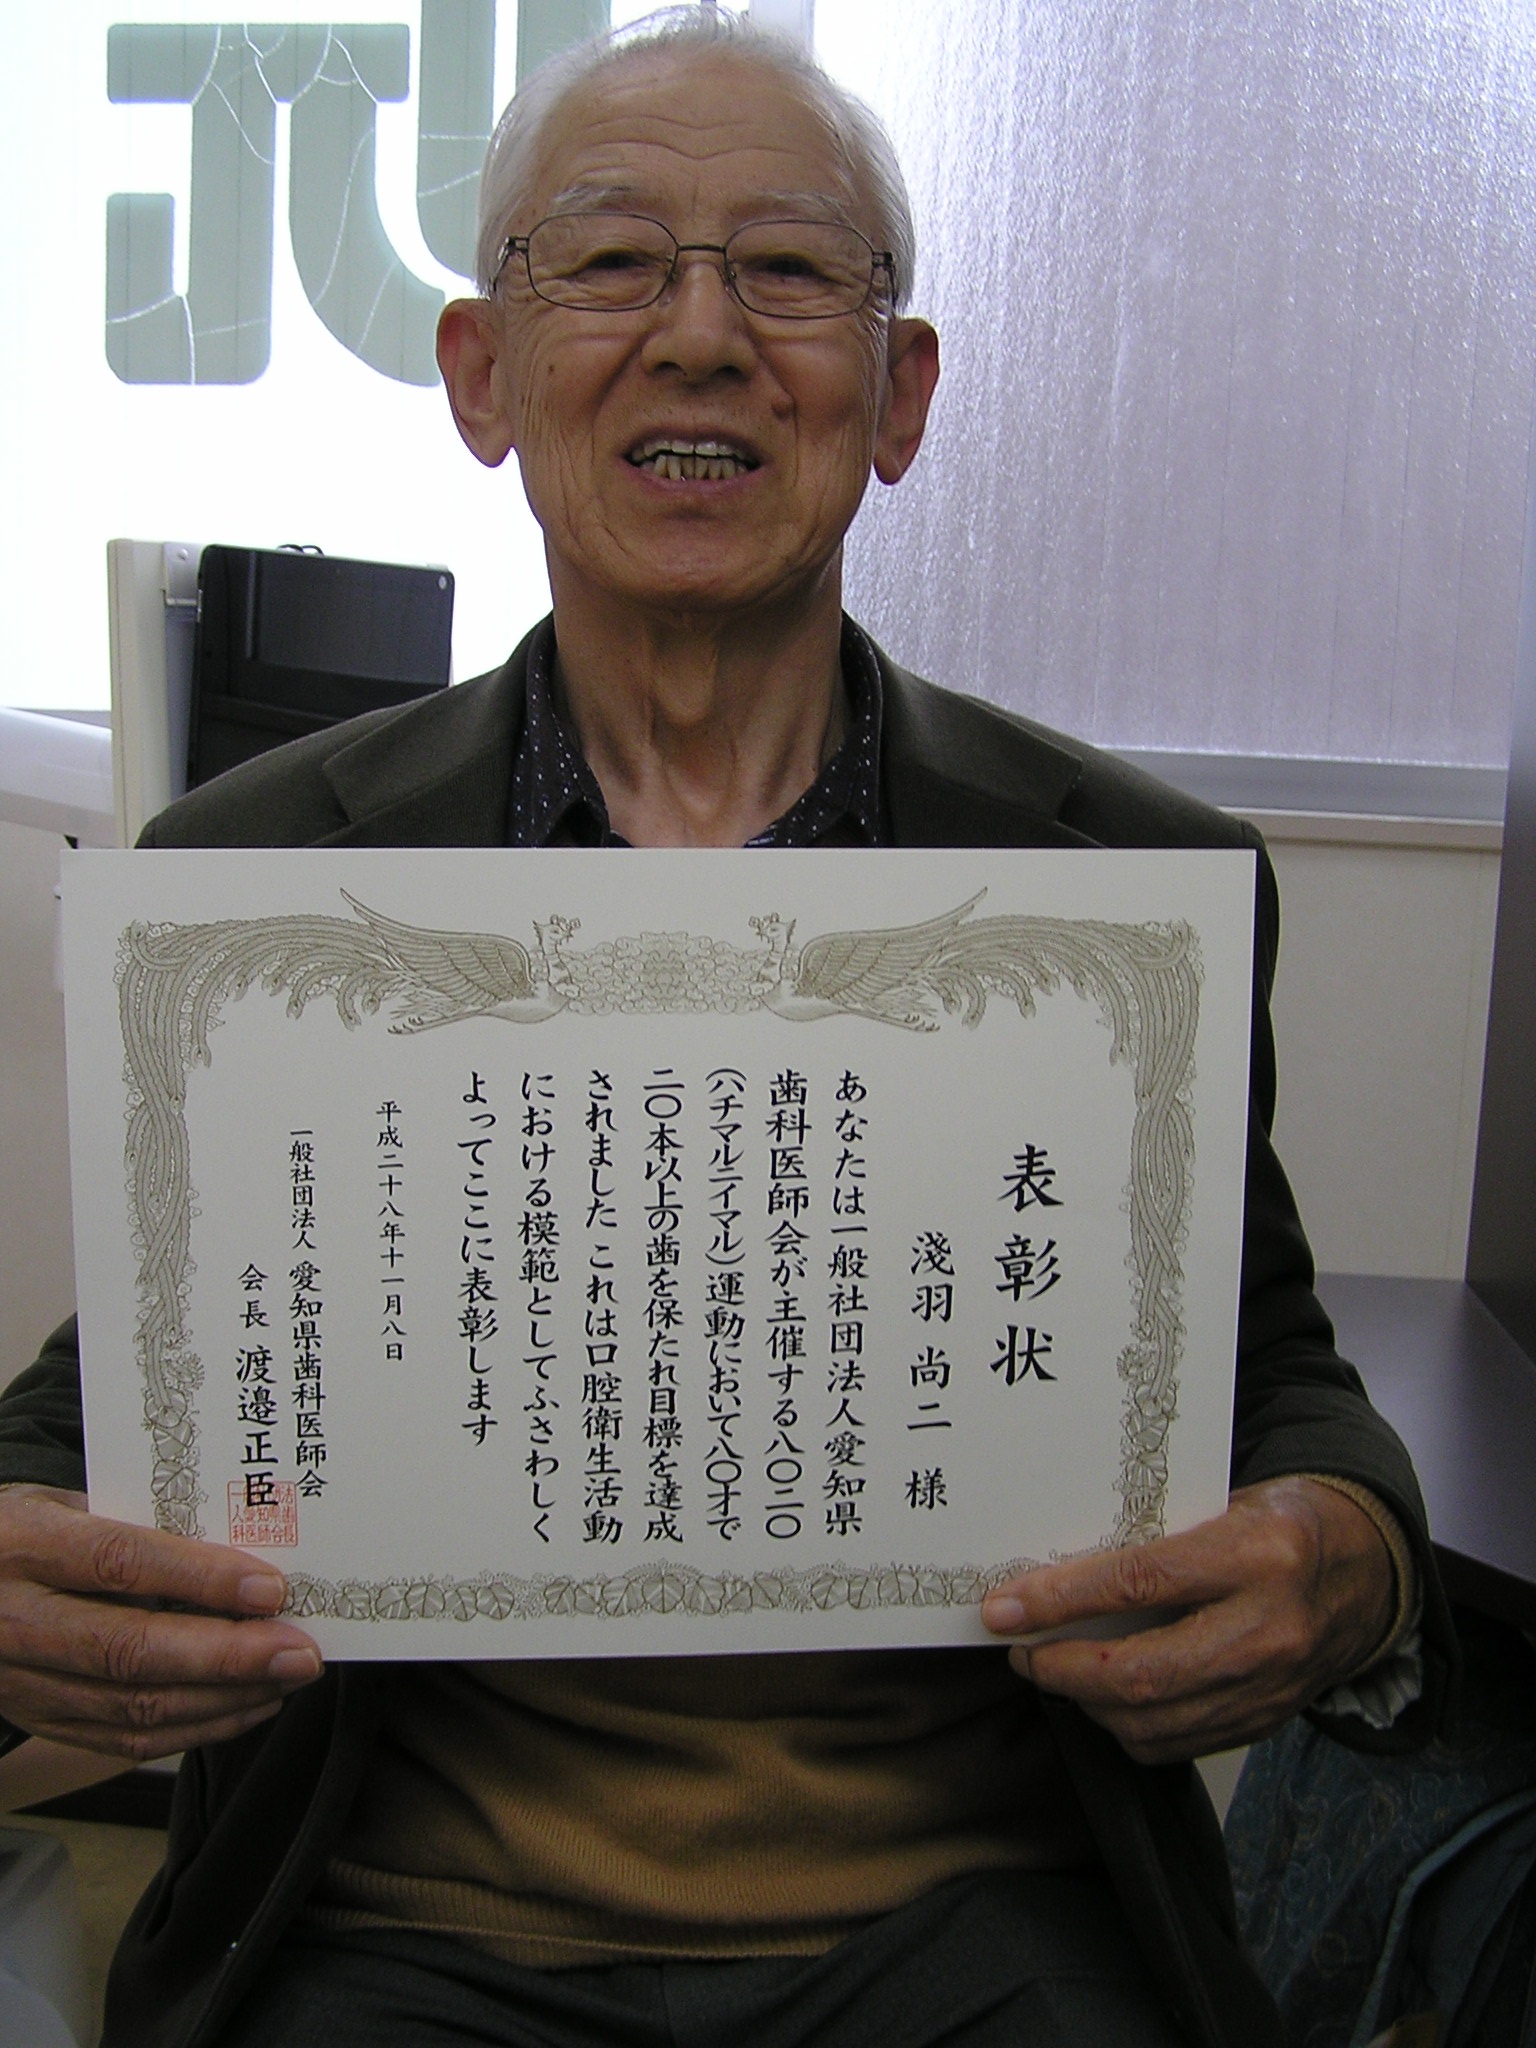 表彰状
淺羽尚二 様
あなたは一般社団法人愛知県
歯科医師会が主催する八〇二〇
(ハチマルニイマル)運動において八〇才で
二〇本以上の歯を保たれ目標を達成
されました これは口腔衛生活動
における模範としてふさわしく
よってここに表彰します
平成二十八年十一月八日
一般社団法人 愛知県歯科医師会
会長 渡邉正臣